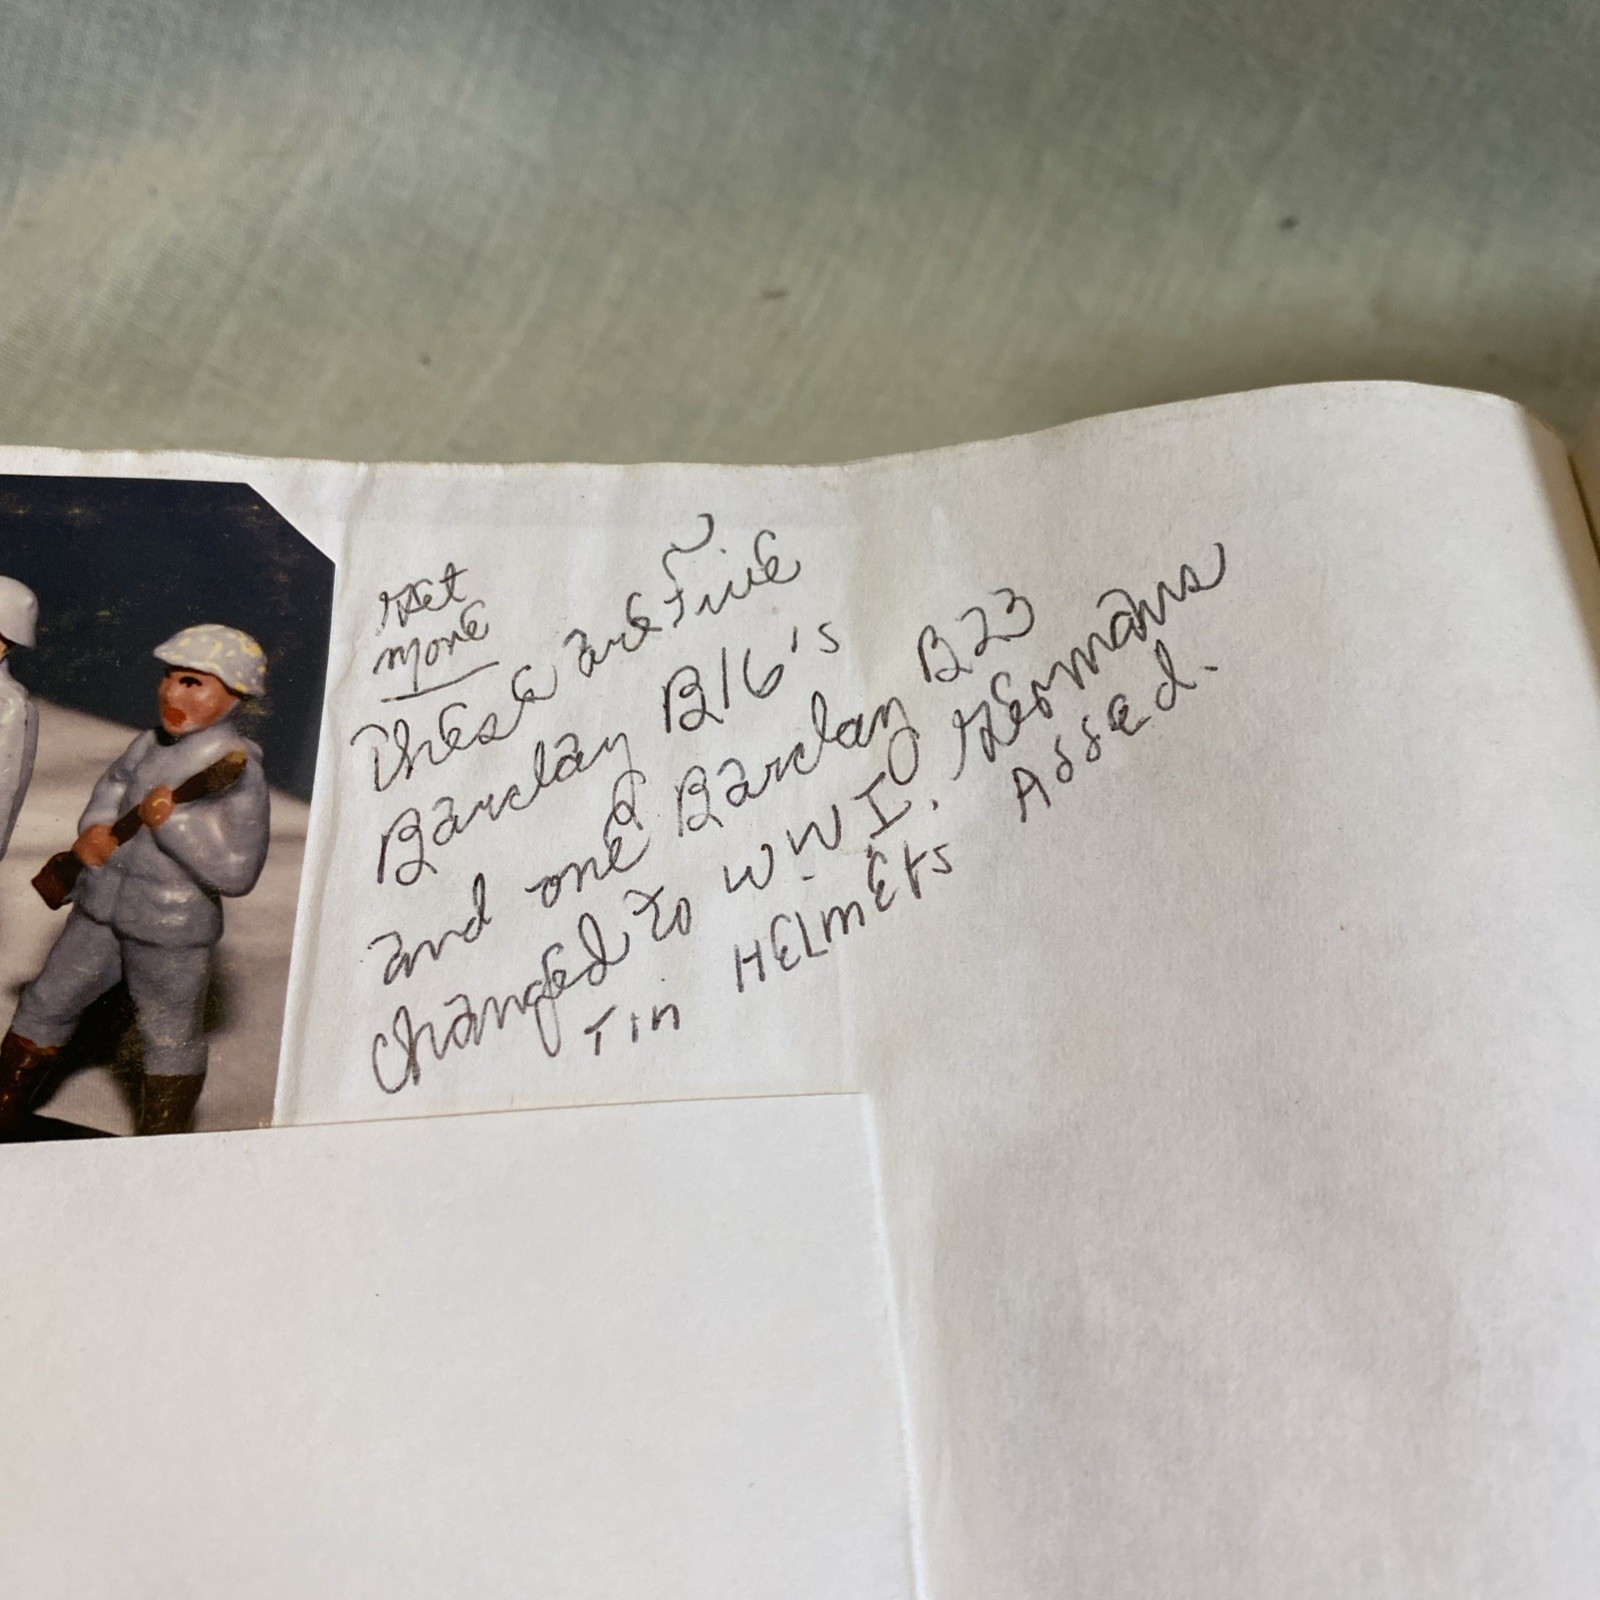 Get
more
These are Five
Barclay B16's
and one Barclay B23
changed to W.W I. Germans
Tin HELMETS Added.